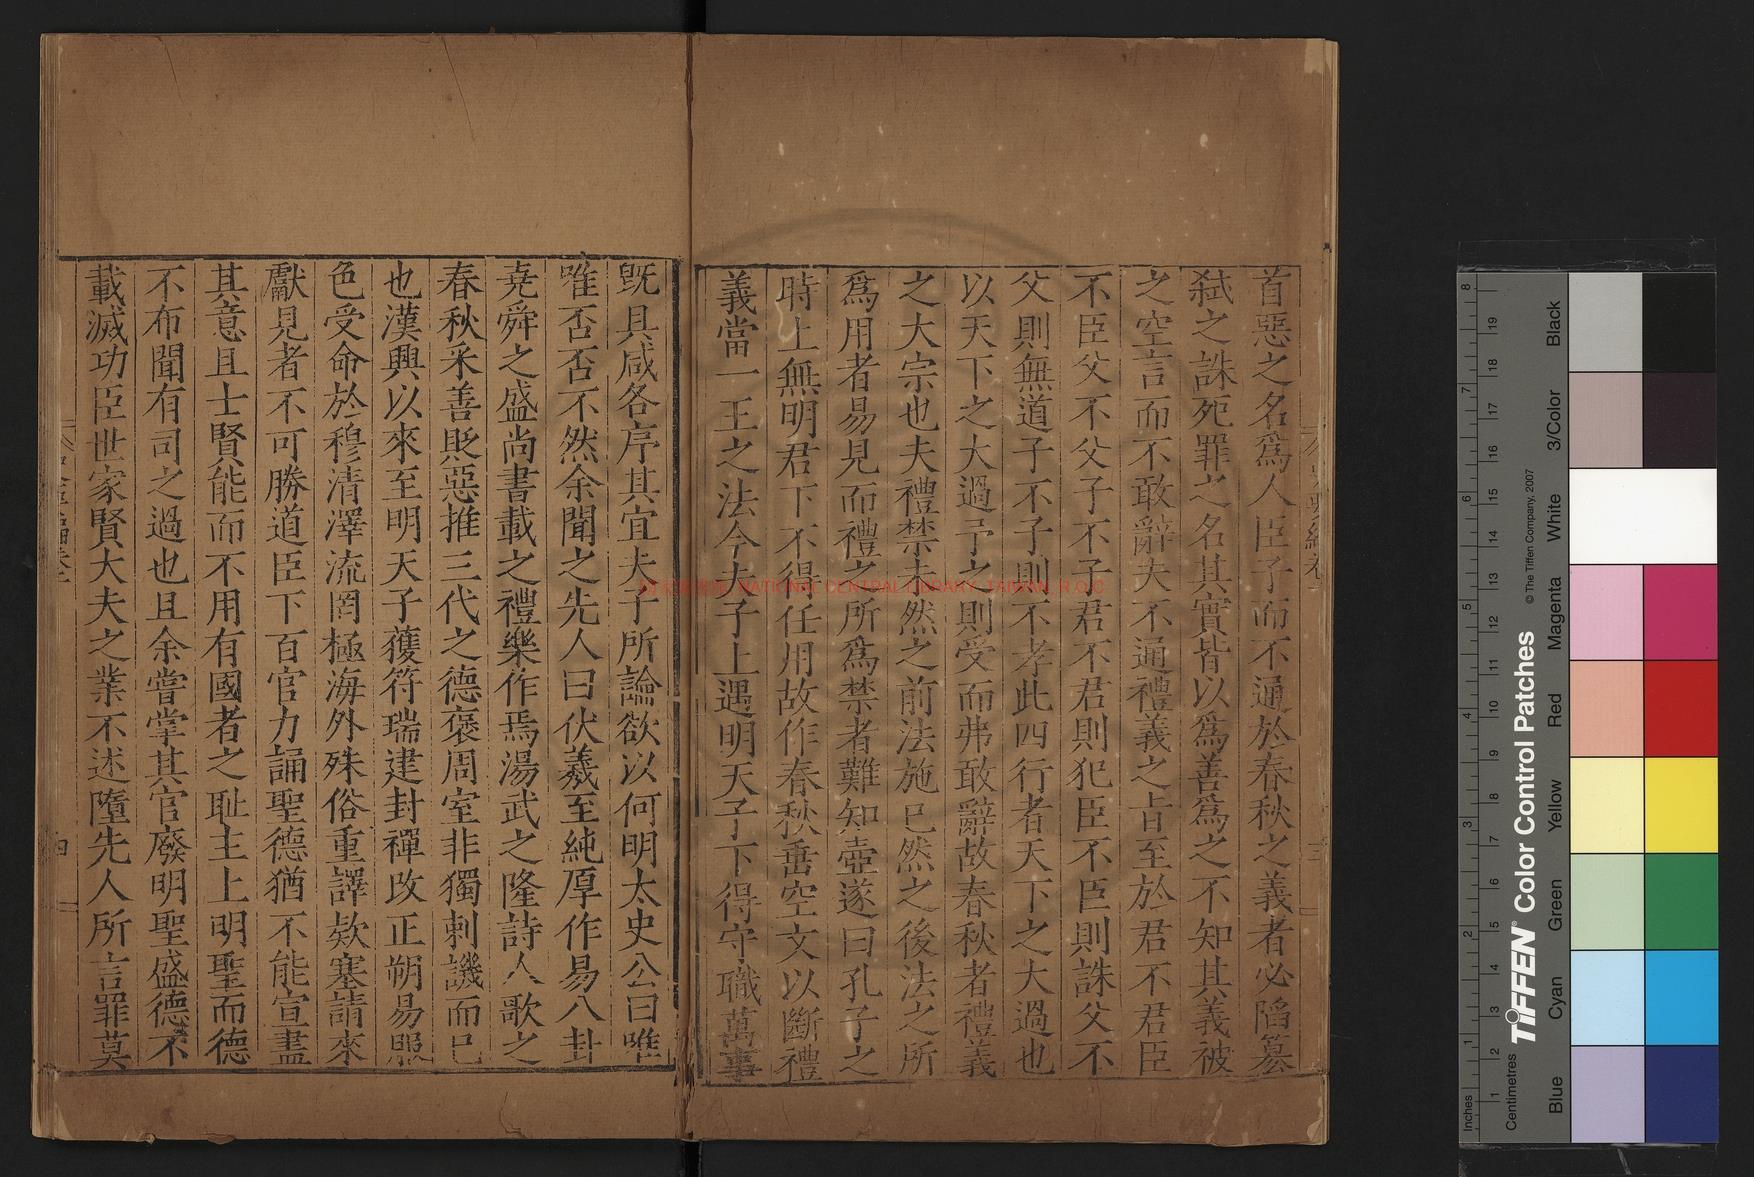 首惡之名爲人臣子而不通於春秋之義者必䧟簒
弑之誅死罪之名其實皆以爲善爲之不知其義被
之空言而不敢辭夫不通禮義之㫖至於君不君臣
不臣父不父子不子君不君則犯臣不臣則誅父不
父則無道子不子則不孝此四行者天下之大過也
以天下之大過予之則受而弗敢辭故春秋者禮義
之大宗也夫禮禁未然之前法施已然之後法之所
爲用者易見而禮之所爲禁者難知壺遂曰孔子之
時上無明君下不得任用故作春秋垂空文以斷禮
義當一王之法今夫子上遇明天子下得守職萬事
旣具咸各序其宜夫子所論欲以何明太史公曰唯
唯否否不然余聞之先人曰伏羲至純厚作易八卦
堯舜之盛尚書載之禮樂作焉湯武之隆詩人歌之
春秋采善貶惡推三代之德褒周室非獨刺譏而已
也漢興以來至明天子獲符瑞建封禪改正朔易服
色受命於穆清澤流罔極海外殊俗重譯欵塞請來
獻見者不可勝道臣下百官力誦聖德猶不能宣盡
其意且士賢能而不用有國者之耻主上明聖而德
不布聞有司之過也且余嘗掌其官廢明聖盛德不
載滅功臣世家賢大夫之業不述墮先人所言罪莫
四
NATIONAL CENTRAL LIBRARY, TAIWAN, R.O.C
Inches
Centimetres
TIFFEN® Color Control Patches
© The Tiffen Company, 2007
Blue
Cyan
Green
Yellow
Red
Magenta
White
3/Color
Black